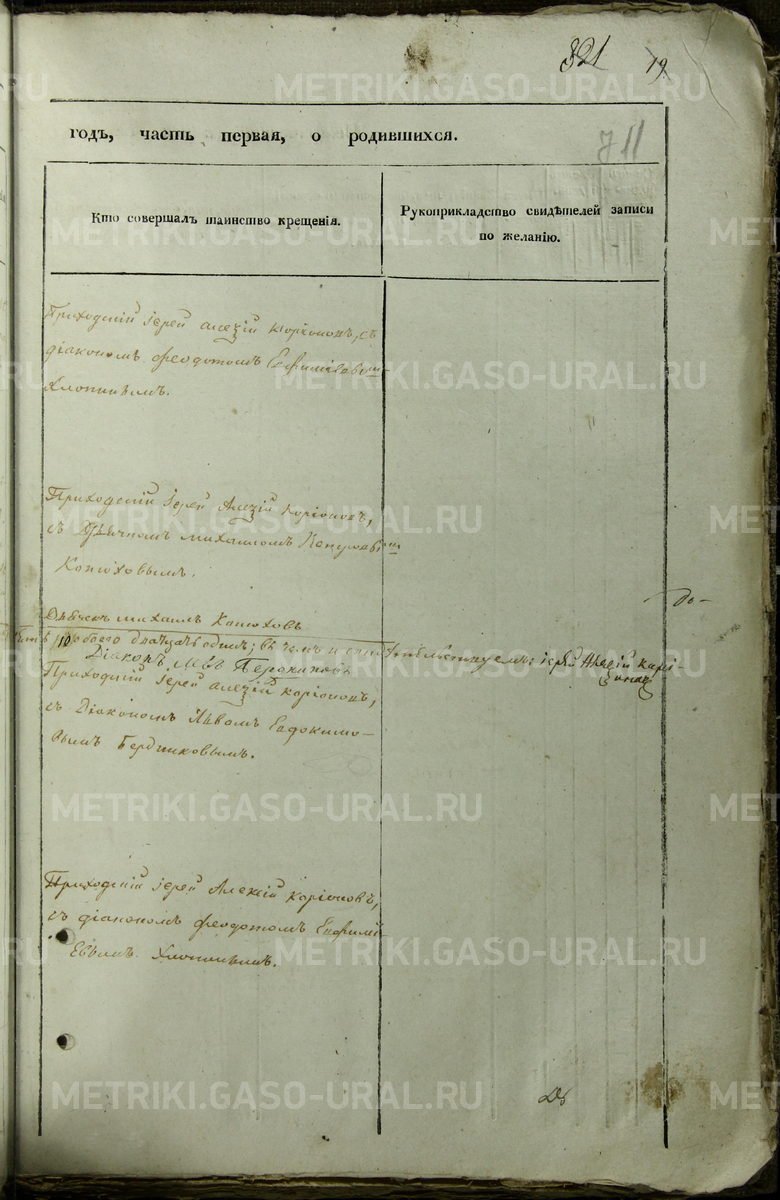 321 19.
711
годъ, часть первая, о родившихся.
Кто совершалъ таинство крещенія.
Рукоприкладство свидѣтелей записи
по желанію.
Приходскій іерей Алеѯій Каріоновъ, съ
діакономъ Феодотомъ Евфиміевы
Хлопинымъ.
Приходскій іерей Алеѯій Каріоновъ,
съ Дьячкомъ Михаиломъ Петровы
Конюховымъ.
Дьячекъ Михаилъ Конюховъ
10 обоего двадцать одинъ; въ чемъ и іерей Алеѯій Карі-
оновъ
Діаконъ Левъ
Приходскій іерей Алеѯій Каріоновъ,
съ Діакономъ Львомъ Евдокимо-
вымъ Бердниковымъ.
Приходскій іерей Алексій Каріоновъ,
съ діакономъ Феодотомъ Евфимі-
евымъ Хлопинымъ.
METRIKI.GASO-URAL.RU